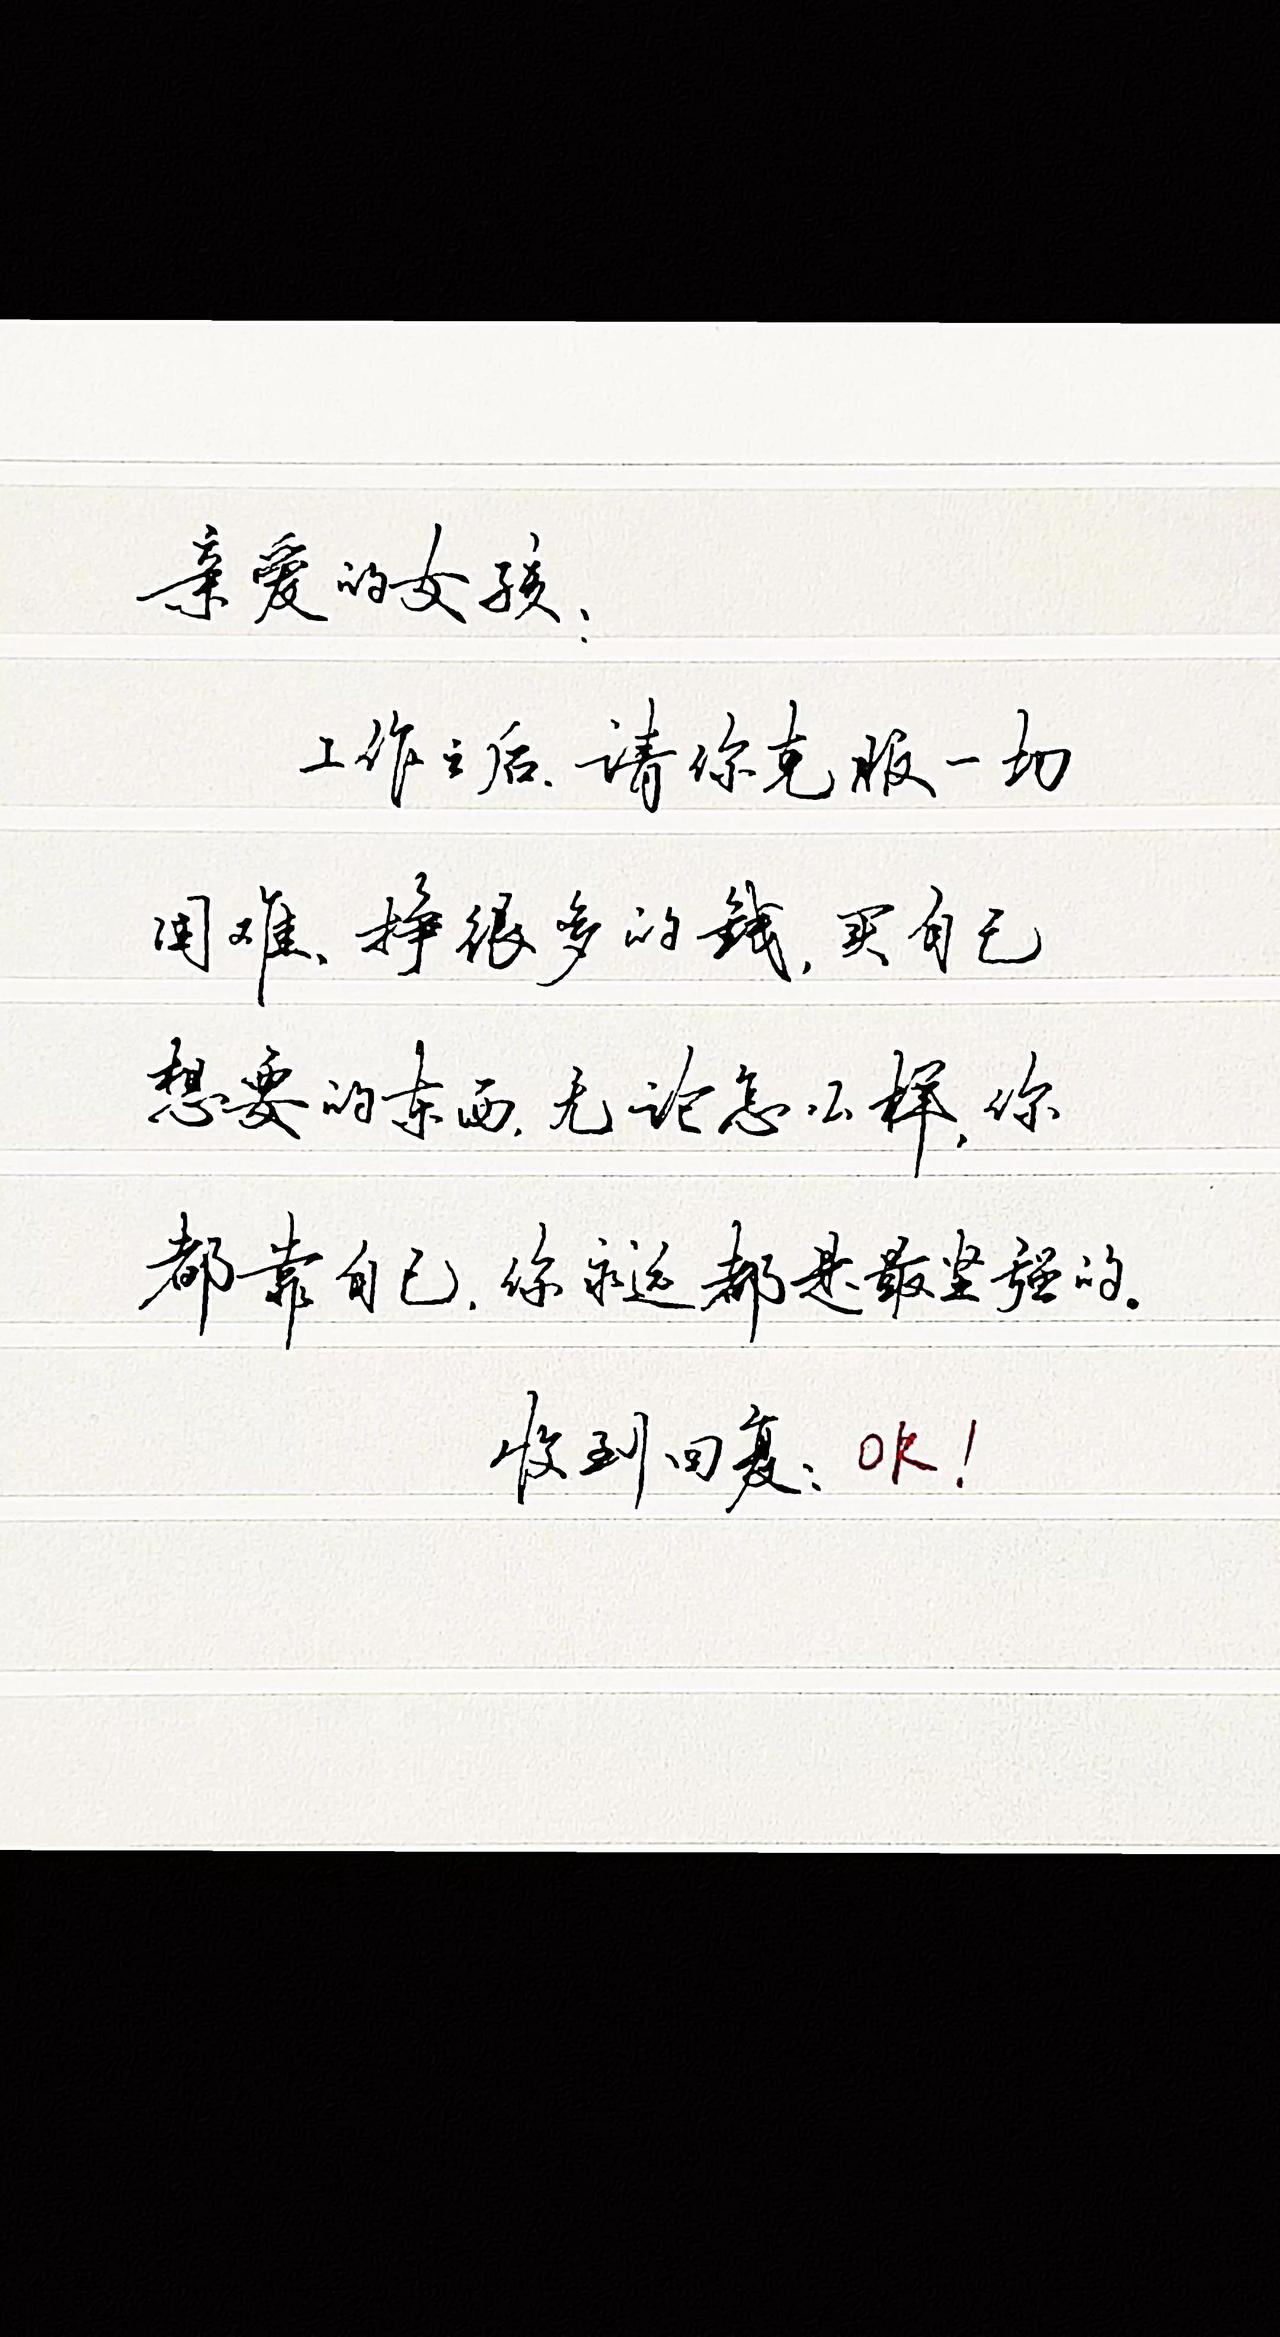 亲爱的女孩：
工作之后，请你克服一切
困难、挣很多的钱，买自己
想要的东西，无论怎么样，你
都靠自己，你永远都是最坚强的。
收到回复：OK！